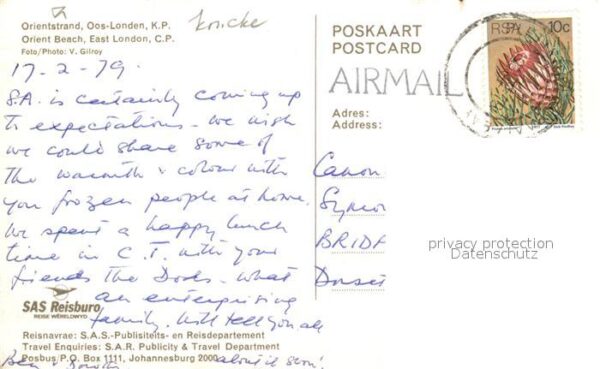 Orientstrand, Oos-Londen, K.P.
Orient Beach, East London, C.P.
Foto/Photo: V. Gilroy
knicke
17-2-79.
S.A. is certainly coming up
to expectations - we wish
we could share some of
the warmth & colour with
you frozen people at home.
We spent a happy lunch
time in C.T. with your
friends the Dods - what
an enterprising
family. Will tell you all
about it soon!
Ben
SAS Reisburo
REISE WÊRELDWYD
Reisnavrae: S.A.S.-Publisiteits- en Reisdepartement
Travel Enquiries: S.A.R. Publicity & Travel Department
Posbus/P.O. Box 1111, Johannesburg 2000
POSKAART
POSTCARD
AIRMAIL
Adres:
Address:
Canon
BRIDP
Dorset
RSA 10c
privacy protection
Datenschutz